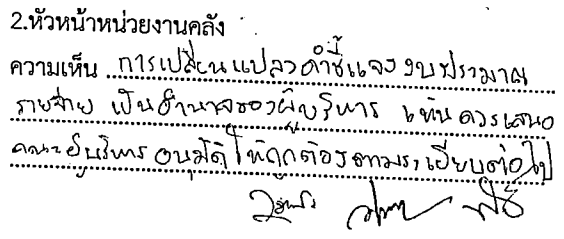 2.หัวหน้าหน่วยงานคลัง
ความเห็น การเปลี่ยนแปลงคำชี้แจงงบประมาณ
รายจ่าย เป็นอำนาจของผู้บริหาร เห็นควรเสนอ
คณะผู้บริหารอนุมัติให้ถูกต้องตามระเบียบต่อไป